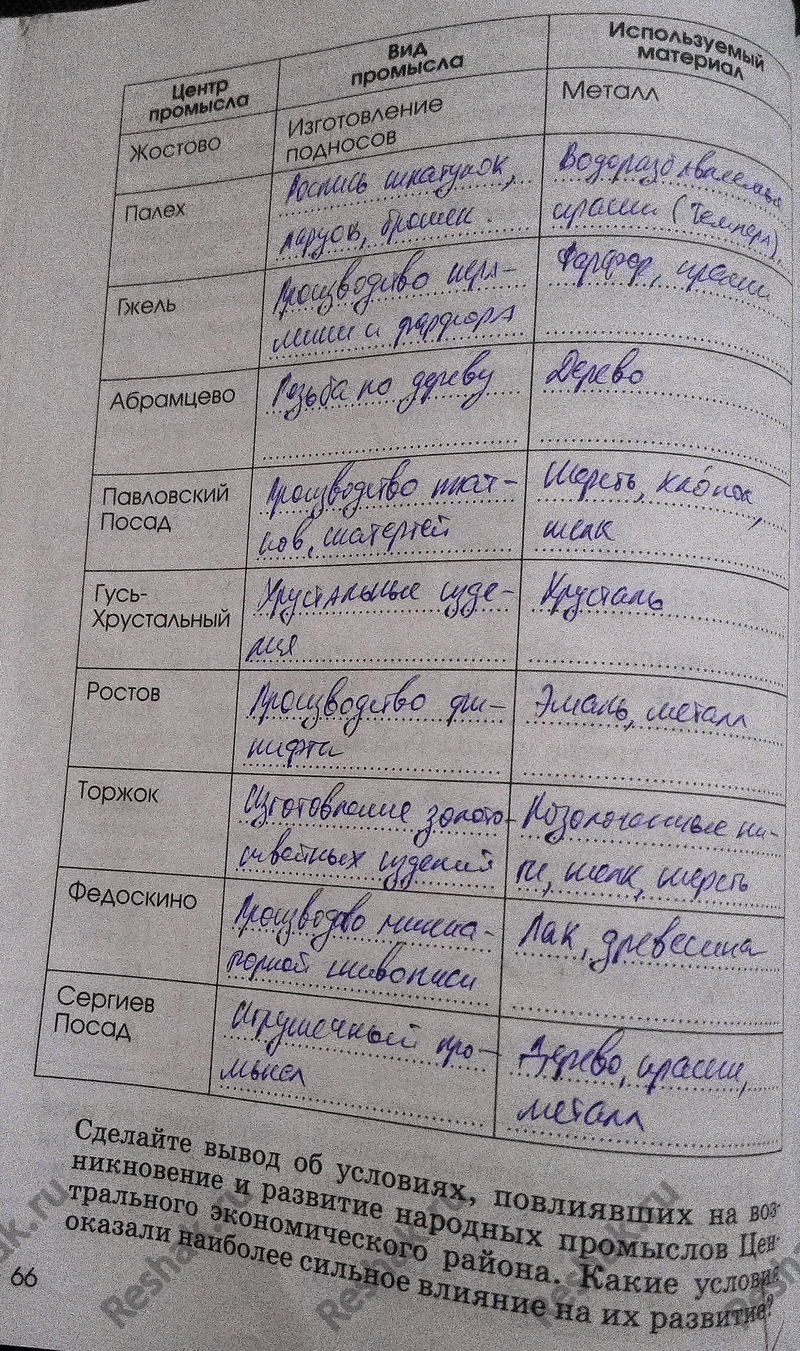 Центр промысла
Вид промысла
Используемый материал
Жостово
Изготовление
подносов
Металл
Палех
Роспись шкатулок,
ларцов, брошек.
Водоразбавляемые
краски (темпера)
Гжель
Производство кера-
мики и фарфора
Фарфор, краски
Абрамцево
Резьба по дереву
Дерево
Павловский
Посад
Производство плат-
ков, скатертей
Шерсть, хлопок,
шелк
Гусь-
Хрустальный
Хрустальные изде-
лия
Хрусталь
Ростов
Производство фи-
нифти
Эмаль, металл
Торжок
Изготовление золото-
швейных изделий
Позолоченные ни-
ти, шелк, шерсть
Федоскино
Производство миниа-
тюрной живописи
Лак, древесина
Сергиев
Посад
Игрушечный про-
мысел
Дерево, краски,
металл
Сделайте вывод об условиях, повлиявших на воз-
никновение и развитие народных промыслов Цен-
трального экономического района. Какие условия
оказали наиболее сильное влияние на их развитие?
66
Reshak.ru
Reshak.ru
Reshak.ru